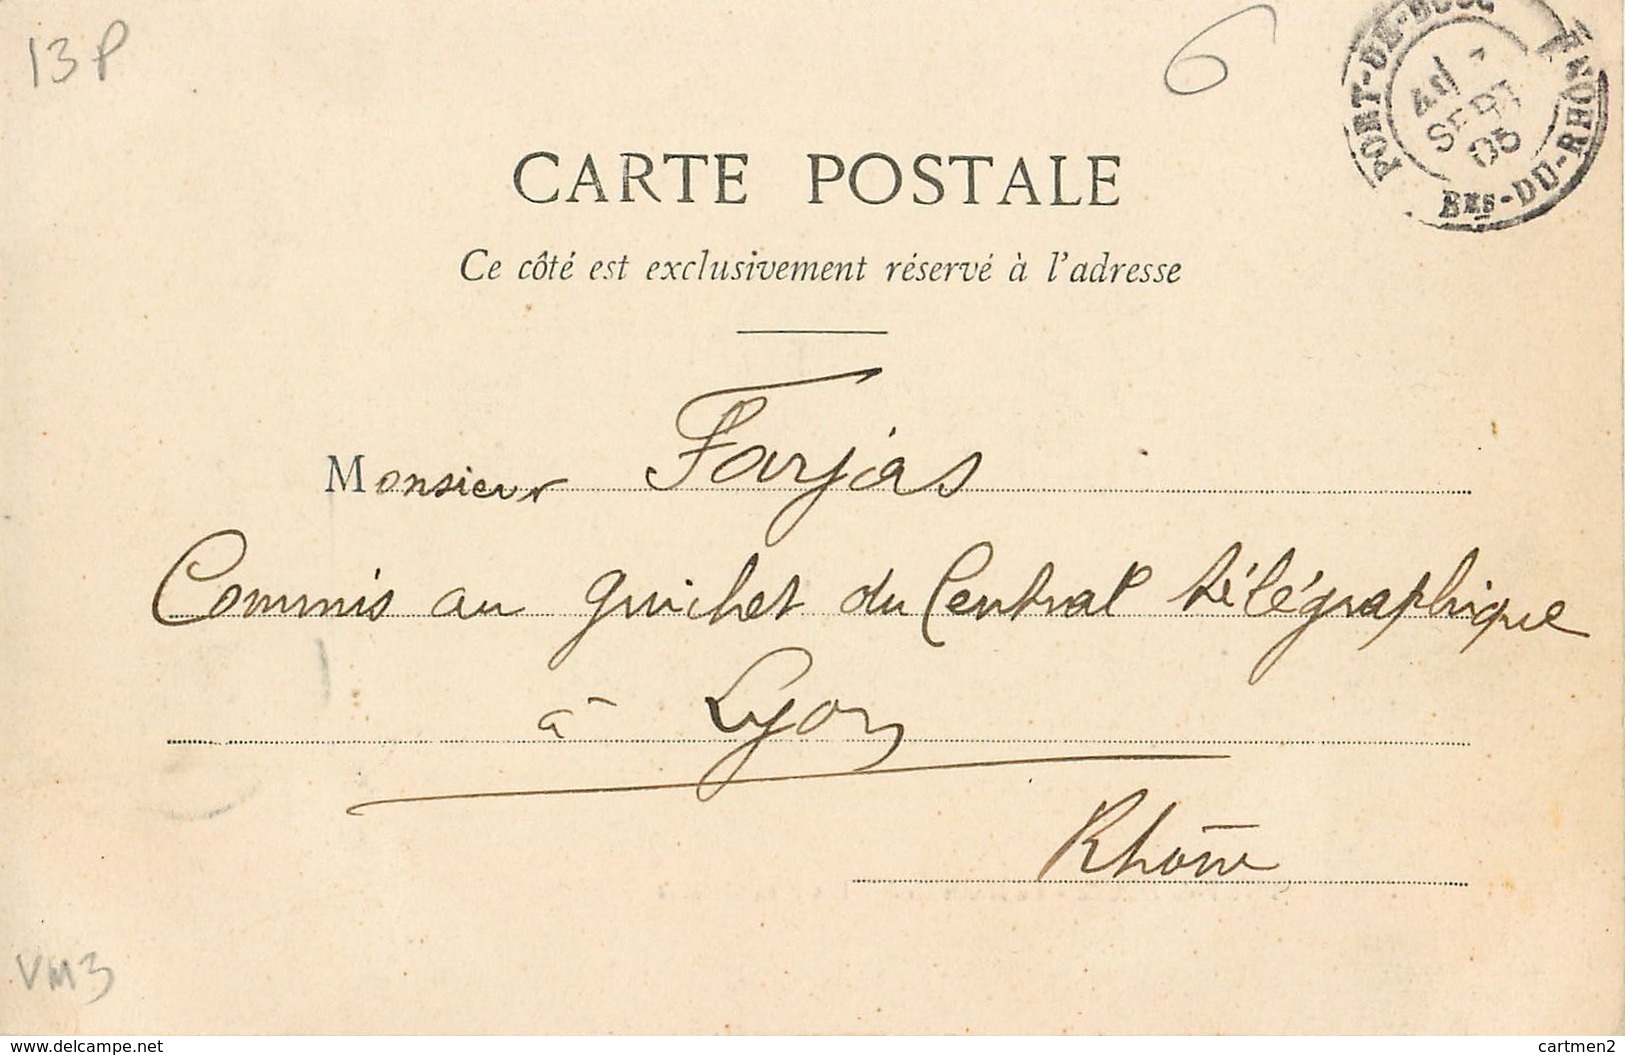 13P
6
PORT-DE-BOUC
SEPT
05
BES-DU-RHONE
CARTE POSTALE
Ce côté est exclusivement réservé à l'adresse
Monsieur Farjas
Commis au guichet du Central télégraphique
à Lyon
Rhône
VM3
www.delcampe.net
cartmen2